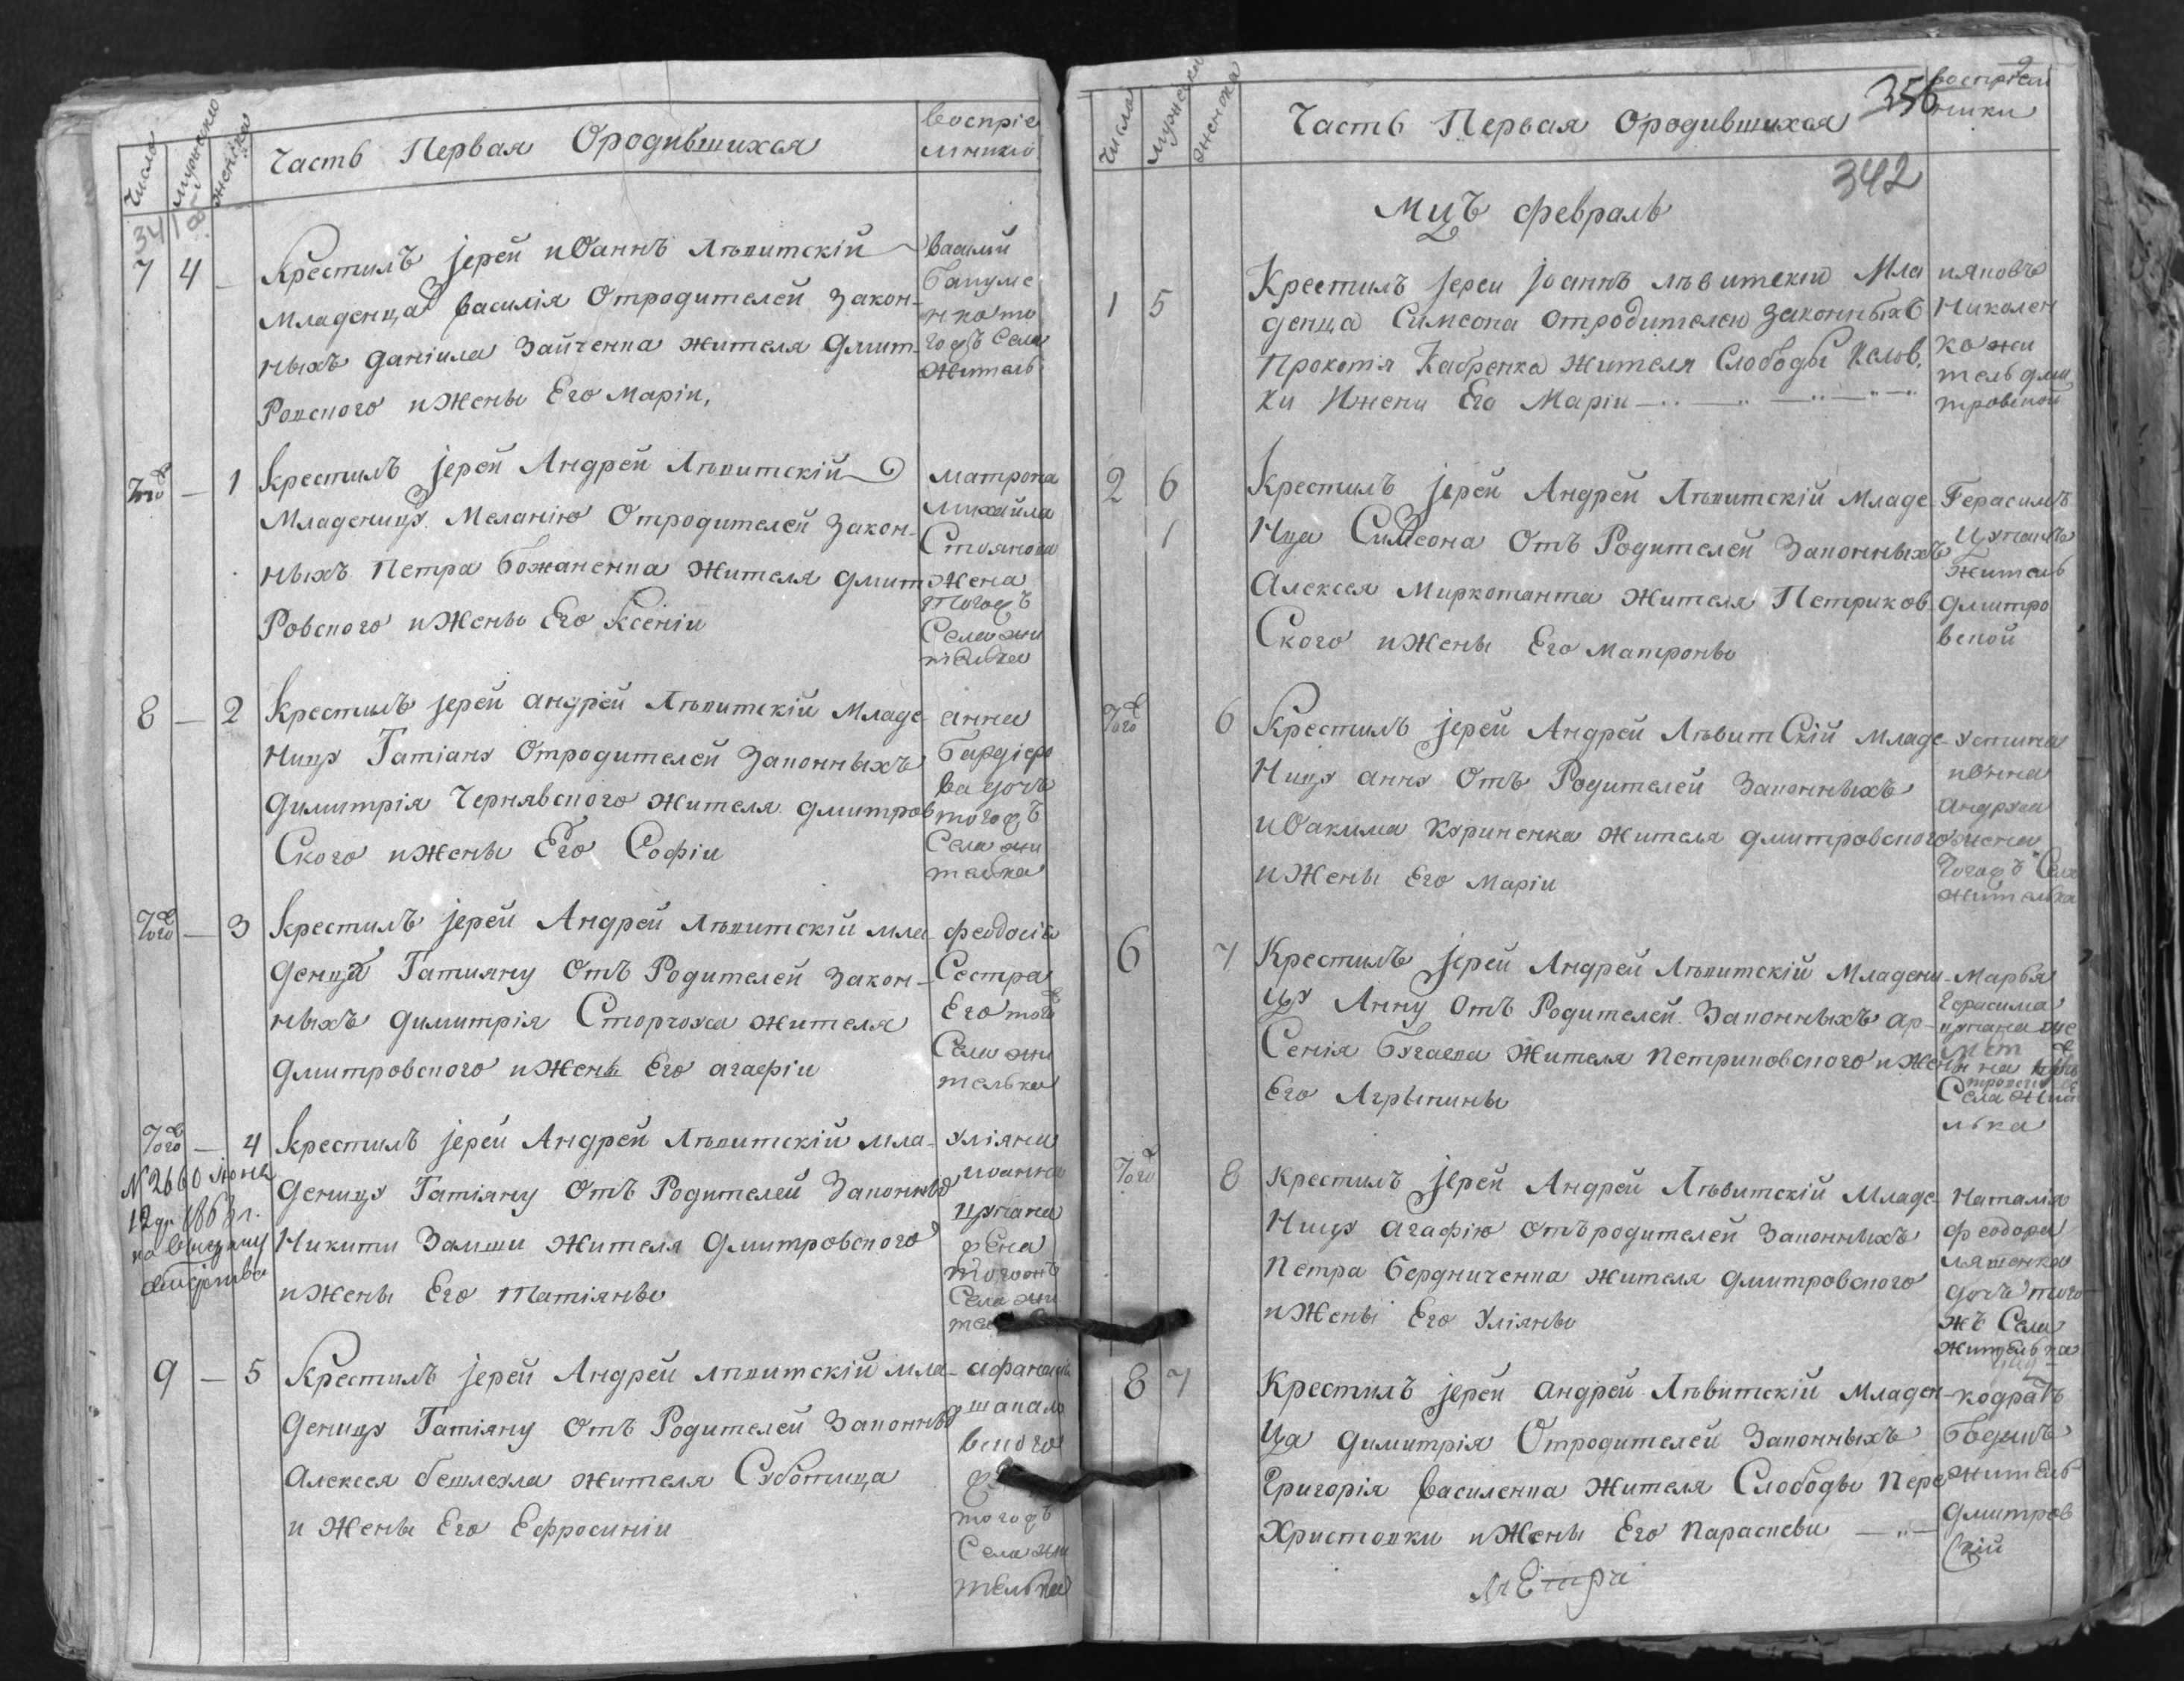 Число
мужеска
женска
Часть Первая Ородившихся
воспріе
мники
7 4 – Крестилъ јерей иоаннъ Лѣвитскій
Младенца василія Отродителей Закон-
ныхъ даніила Зайченка жителя дмит-
Ровского иЖены Его маріи,
василій
того жъ Села
житель
Того – 1 Крестилъ јерей Андрей Лѣвитскій
Младеницу Меланію Отродителей Закон-
ныхъ Петра Божаненка жителя дмит
Ровского иЖены Его Ксеніи
матрона
михайла
Стоянова
жена
тогожъ
Села жи
телька
8 – 2 Крестилъ јерей андрей Лѣвитскій Младе
ницу Татіану Отродителей Законныхъ
димитрія Чернявского жителя дмитров
Ского иЖены Его Софіи
анна
дочь
тогожъ
Села жи
телька
Того – 3 Крестилъ јерей Андрей Лѣвитскій мла
деницу Татияну Отъ Родителей Закон-
ныхъ димитрія жителя
дмитровского иЖены Его агафіи
феодосія
Сестра
Его того
Села жи
телька
Того – 4 Крестилъ јерей Андрей Лѣвитскій мла-
деницу Татіяну Отъ Родителей Законны
Никиты Замши жителя дмитровского
иЖены Его татіяны
N 2660 июня
12 дн. 1863 г.
уліяна
иоанна
цупана
жена
тогожъ
Села жи
9 – 5 Крестилъ јерей Андрей лѣвитскій мла-
деницу Татіяну Отъ Родителей Законны
Алексея жителя Субботица
и Жены Его Ефросиніи
тогожъ
Села жи
телька
Число
мужеска
женска
Часть Первая Ородившихся
воспріем
ники
356
342
Мцъ февраль
1 5 Крестилъ јереи јоаннъ лѣвитскіи Мла
денца Симеона отродителеи законныхъ
Прокопія жителя Слободы
ки Ижени Его Маріи
Николен
ко жи
тель дми
тровской
2 6 Крестилъ јерей Андрей Лѣвитскій Младе
1
Нца Симеона Отъ Родителей Законныхъ
Алексея Миркотанта жителя Петриков
Ского иЖены Его матроны
Герасимъ
цупанъ
житель
дмитро
вской
Того 6 Крестилъ јерей Андрей ЛѣвитСкій младе
Ницу анну Отъ Родителей Законныхъ
иоакима Куриченка жителя дмитровского
иЖены Его маріи
устина
иоанна
андруса
жена
тогожъ Села
жителька
6 7 Крестилъ јерей Андрей Лѣвитскій Младени
цу Анну Отъ Родителей Законныхъ ар-
Сенія Бугаева жителя петриковского иЖены
Его Агрыпины
Марья
герасима
цупана
Села
лька
Того 8 Крестилъ јерей Андрей Лѣвитскій Младе
Ницу агафію отъродителей Законныхъ
Петра Бердниченка жителя дмитровского
иЖены Его Уліяны
Наталія
феодора
дочь того
жъ Села
жителька
8 7 Крестилъ јерей андрей Лѣвитскій Младен
ца димитрія Отродителей Законныхъ
Григорія василенка жителя Слободы Пере
Христовки иЖены Его параскеви
кодратъ
житель
дмитров
скій